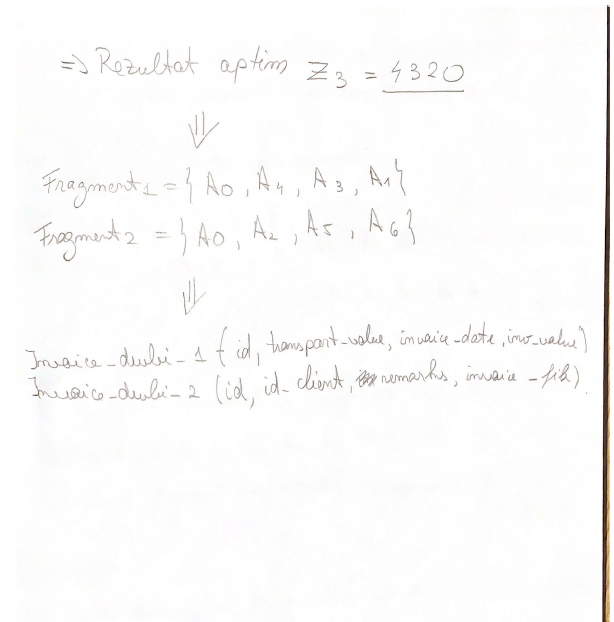 => Rezultat optim Z3 = 4320
Fragment1 = { A0, A4, A3, A1}
Fragment2 = { A0, A2, A5, A6}
Invoice_deubi_1 (id, transport_value, invoice_date, inv_value)
Invoice_deubi_2 (id, id_client, remarks, invoice_file)